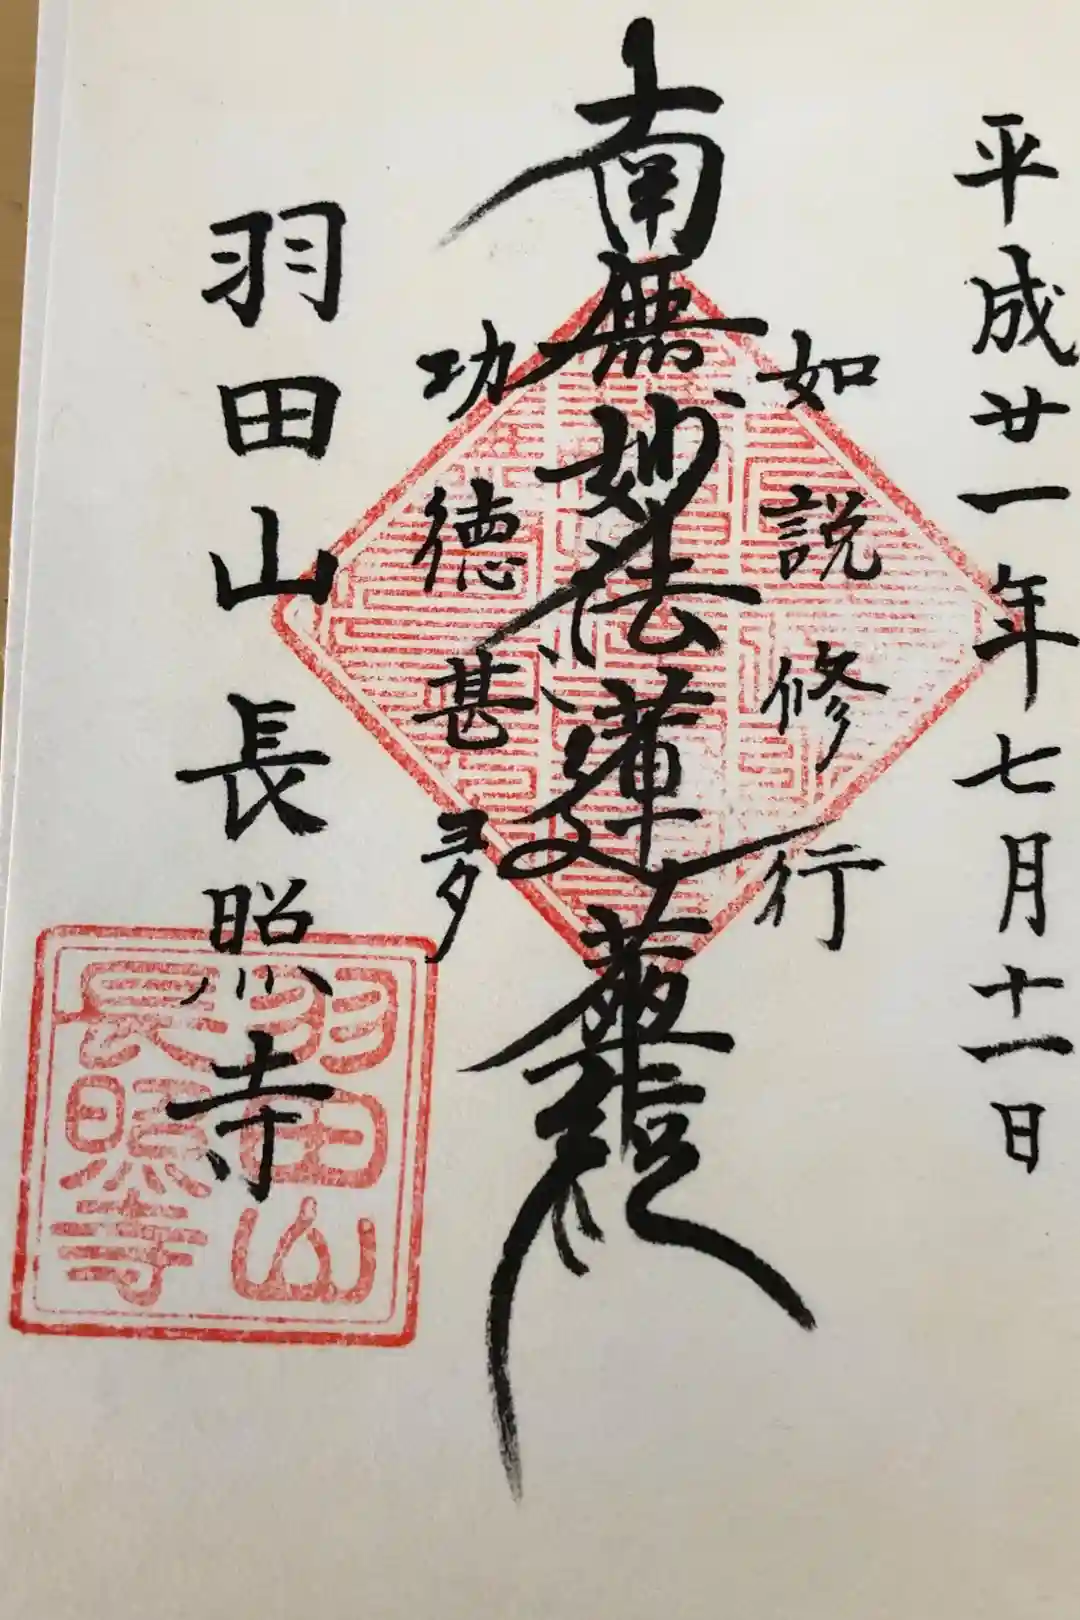 平成廿一年七月十一日
如説修行
南無妙法蓮華経
功徳甚多
羽田山長照寺
羽田山
長照寺